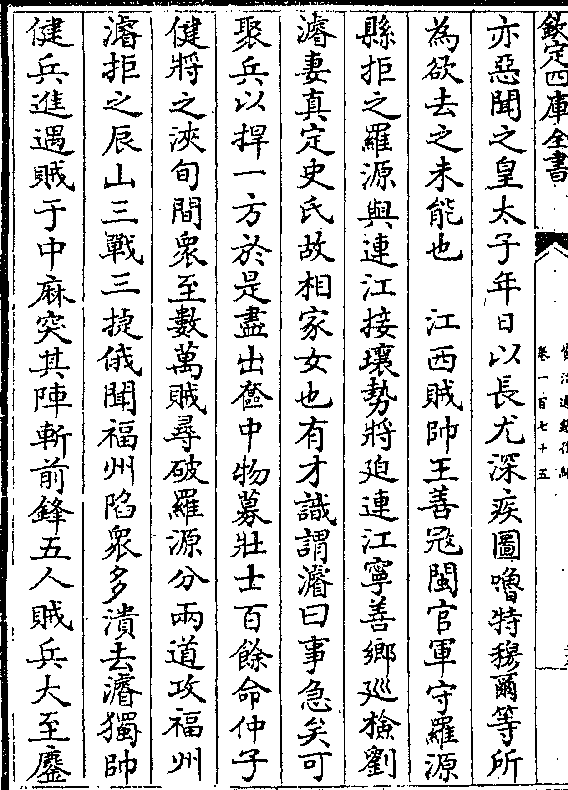 欽定四庫全書
卷一百七十五
亦惡聞之皇太子年日以長尤深疾圖嚕特穆爾等所
為欲去之未能也　江西賊帥王善冦閩官軍守羅源
縣拒之羅源與連江接壤勢將廹連江寧善鄉廵檢劉
濬妻真定史氏故相家女也有才識謂濬曰事急矣可
聚兵以捍一方於是盡出奩中物募壯士百餘命仲子
健將之浹旬間衆至數萬賊尋破羅源分兩道攻福州
濬拒之辰山三戰三捷俄聞福州陷衆多潰去濬獨帥
健兵進遇賊于中麻突其陣斬前鋒五人賊兵大至鏖